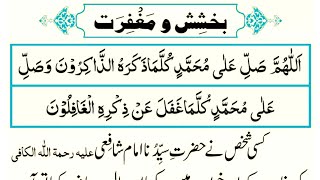 بخشِش و مَغْفِرَت
اَللّٰهُمَّ صَلِّ عَلٰى مُحَمَّدٍ كُلَّمَاذَكَرَهُ الذَّاكِرُوْنَ وَصَلِّ
عَلٰى مُحَمَّدٍ كُلَّمَاغَفَلَ عَنْ ذِكْرِهِ الْغَافِلُوْنَ
کسی شخص نے حضرتِ سیّدُنا امام شافعی علیه رحمة اللّٰه الکافی